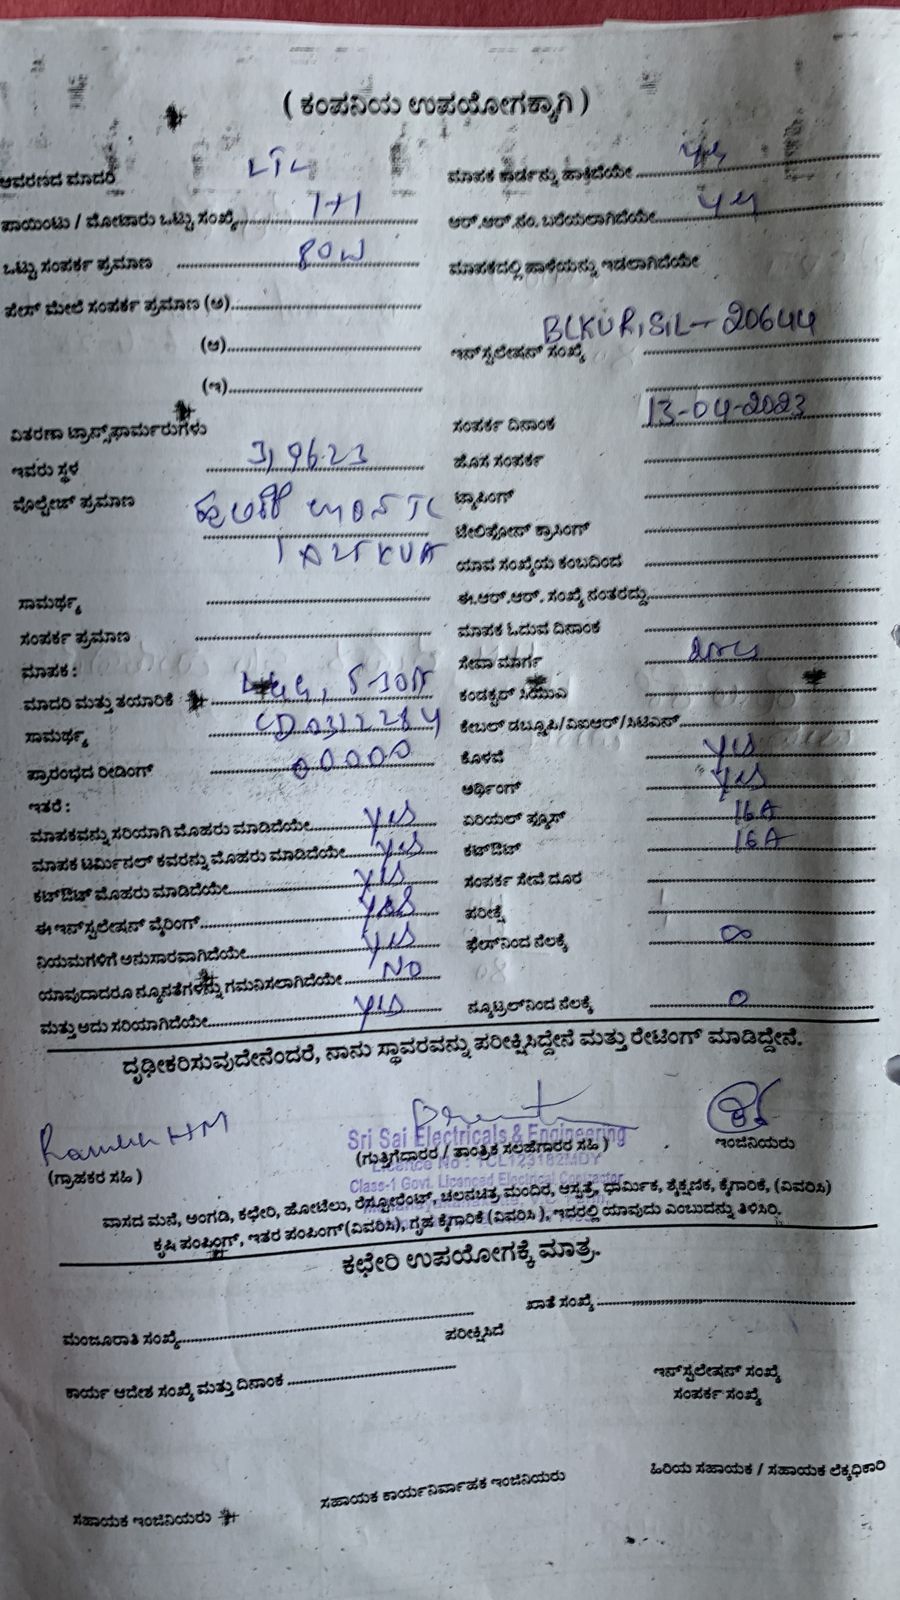 ( ಕಂಪನಿಯ ಉಪಯೋಗಕ್ಕಾಗಿ )
ಆವರಣದ ಮಾದರಿ
ಪಾಯಿಂಟು / ಮೋಟಾರು ಒಟ್ಟು ಸಂಖ್ಯೆ 1+1
ಒಟ್ಟು ಸಂಪರ್ಕ ಪ್ರಮಾಣ 80W
ಪೇಸ್ ಮೇಲೆ ಸಂಪರ್ಕ ಪ್ರಮಾಣ (ಅ)
(ಆ)
(ಇ)
ವಿತರಣಾ ಟ್ರಾನ್ಸ್‌ಫಾರ್ಮರುಗಳು
ಇವರು ಸ್ಥಳ
ವೊಲ್ಟೇಜ್ ಪ್ರಮಾಣ
ಸಾಮರ್ಥ್ಯ
ಸಂಪರ್ಕ ಪ್ರಮಾಣ
ಮಾಪಕ :
ಮಾದರಿ ಮತ್ತು ತಯಾರಿಕೆ
ಸಾಮರ್ಥ್ಯ
ಪ್ರಾರಂಭದ ರೀಡಿಂಗ್ 00000
ಇತರೆ :
ಮಾಪಕವನ್ನು ಸರಿಯಾಗಿ ಮೊಹರು ಮಾಡಿದೆಯೇ Yes
ಮಾಪಕ ಟರ್ಮಿನಲ್ ಕವರನ್ನು ಮೊಹರು ಮಾಡಿದೆಯೇ Yes
ಕಟ್‌ಔಟ್ ಮೊಹರು ಮಾಡಿದೆಯೇ Yes
ಈ ಇನ್‌ಸ್ಟಲೇಷನ್ ವೈರಿಂಗ್ Yes
ನಿಯಮಗಳಿಗೆ ಅನುಸಾರವಾಗಿದೆಯೇ Yes
ಯಾವುದಾದರೂ ನ್ಯೂನತೆಗಳನ್ನು ಗಮನಿಸಲಾಗಿದೆಯೇ NO
ಮತ್ತು ಅದು ಸರಿಯಾಗಿದೆಯೇ Yes
ಮಾಪಕ ಕಾರ್ಡನ್ನು ಹಾಕಿದೆಯೇ Yes
ಆರ್.ಆರ್.ನಂ. ಬರೆಯಲಾಗಿದೆಯೇ Yes
ಮಾಪಕದಲ್ಲಿ ಹಾಳೆಯನ್ನು ಇಡಲಾಗಿದೆಯೇ
ಇನ್‌ಸ್ಟಲೇಷನ್ ಸಂಖ್ಯೆ BLKURISIL-20644
ಸಂಪರ್ಕ ದಿನಾಂಕ 13-04-2023
ಹೊಸ ಸಂಪರ್ಕ
ಟ್ಯಾಪಿಂಗ್
ಟೇಲಿಫೋನ್ ಕ್ರಾಸಿಂಗ್
ಯಾವ ಸಂಖ್ಯೆಯ ಕಂಬದಿಂದ
ಈ.ಆರ್.ಆರ್. ಸಂಖ್ಯೆ ನಂತರದ್ದು
ಮಾಪಕ ಓದುವ ದಿನಾಂಕ
ಸೇವಾ ಮಾರ್ಗ
ಕಂಡಕ್ಟರ್ ಸಿಯುಎ
ಕೇಬಲ್ ಡಬ್ಲೂಪಿ/ವಿಐಆರ್/ಸಿಟಿಎಸ್
ಕೊಳವೆ Yes
ಅರ್ಥಿಂಗ್ Yes
ಏರಿಯಲ್ ಫ್ಯೂಸ್ 16A
ಕಟ್‌ಔಟ್ 16A
ಸಂಪರ್ಕ ಸೇವೆ ದೂರ
ಪರೀಕ್ಷೆ
ಫೇಸ್‌ನಿಂದ ನೆಲಕ್ಕೆ ∞
ನ್ಯೂಟ್ರಲ್‌ನಿಂದ ನೆಲಕ್ಕೆ 0
ದೃಢೀಕರಿಸುವುದೇನೆಂದರೆ, ನಾನು ಸ್ಥಾವರವನ್ನು ಪರೀಕ್ಷಿಸಿದ್ದೇನೆ ಮತ್ತು ರೇಟಿಂಗ್ ಮಾಡಿದ್ದೇನೆ.
Sri Sai Electricals & Engineering
(ಗ್ರಾಹಕರ ಸಹಿ ) (ಗುತ್ತಿಗೆದಾರರ / ತಾಂತ್ರಿಕ ಸಲಹೆಗಾರರ ಸಹಿ ) ಇಂಜಿನಿಯರು
Class-1 Govt. Licenced Electrical Contractor
ವಾಸದ ಮನೆ, ಅಂಗಡಿ, ಕಛೇರಿ, ಹೋಟೆಲು, ರೆಸ್ಟೋರೆಂಟ್, ಚಲನಚಿತ್ರ ಮಂದಿರ, ಆಸ್ಪತ್ರೆ, ಧಾರ್ಮಿಕ, ಶೈಕ್ಷಣಿಕ, ಕೈಗಾರಿಕೆ, (ವಿವರಿಸಿ)
ಕೃಷಿ ಪಂಪಿಂಗ್, ಇತರ ಪಂಪಿಂಗ್ (ವಿವರಿಸಿ), ಗೃಹ ಕೈಗಾರಿಕೆ (ವಿವರಿಸಿ ), ಇದರಲ್ಲಿ ಯಾವುದು ಎಂಬುದನ್ನು ತಿಳಿಸಿರಿ.
ಕಛೇರಿ ಉಪಯೋಗಕ್ಕೆ ಮಾತ್ರ.
ಮಂಜೂರಾತಿ ಸಂಖ್ಯೆ ಖಾತೆ ಸಂಖ್ಯೆ
ಪರೀಕ್ಷಿಸಿದೆ
ಕಾರ್ಯ ಆದೇಶ ಸಂಖ್ಯೆ ಮತ್ತು ದಿನಾಂಕ ಇನ್‌ಸ್ಟಲೇಷನ್ ಸಂಖ್ಯೆ
ಸಂಪರ್ಕ ಸಂಖ್ಯೆ
ಸಹಾಯಕ ಇಂಜಿನಿಯರು ಸಹಾಯಕ ಕಾರ್ಯನಿರ್ವಾಹಕ ಇಂಜಿನಿಯರು ಹಿರಿಯ ಸಹಾಯಕ / ಸಹಾಯಕ ಲೆಕ್ಕಧಿಕಾರಿ